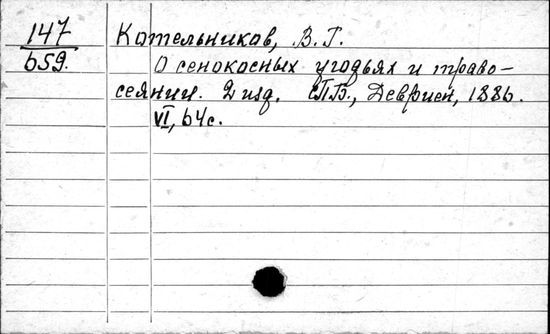 147 Котельников, В. Г.
659. О сенокосных угодьях и траво-
сеянии. 2 изд. СПБ., Девриен, 1886.
VI, 64 с.